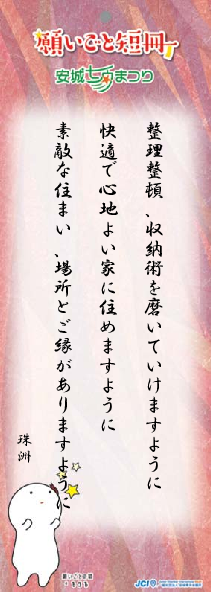 願いごと短冊
安城七夕まつり
整理整頓、収納術を磨いていけますように
快適で心地よい家に住めますように
素敵な住まい、場所とご縁がありますように
珠洲
願いごと短冊
JCI